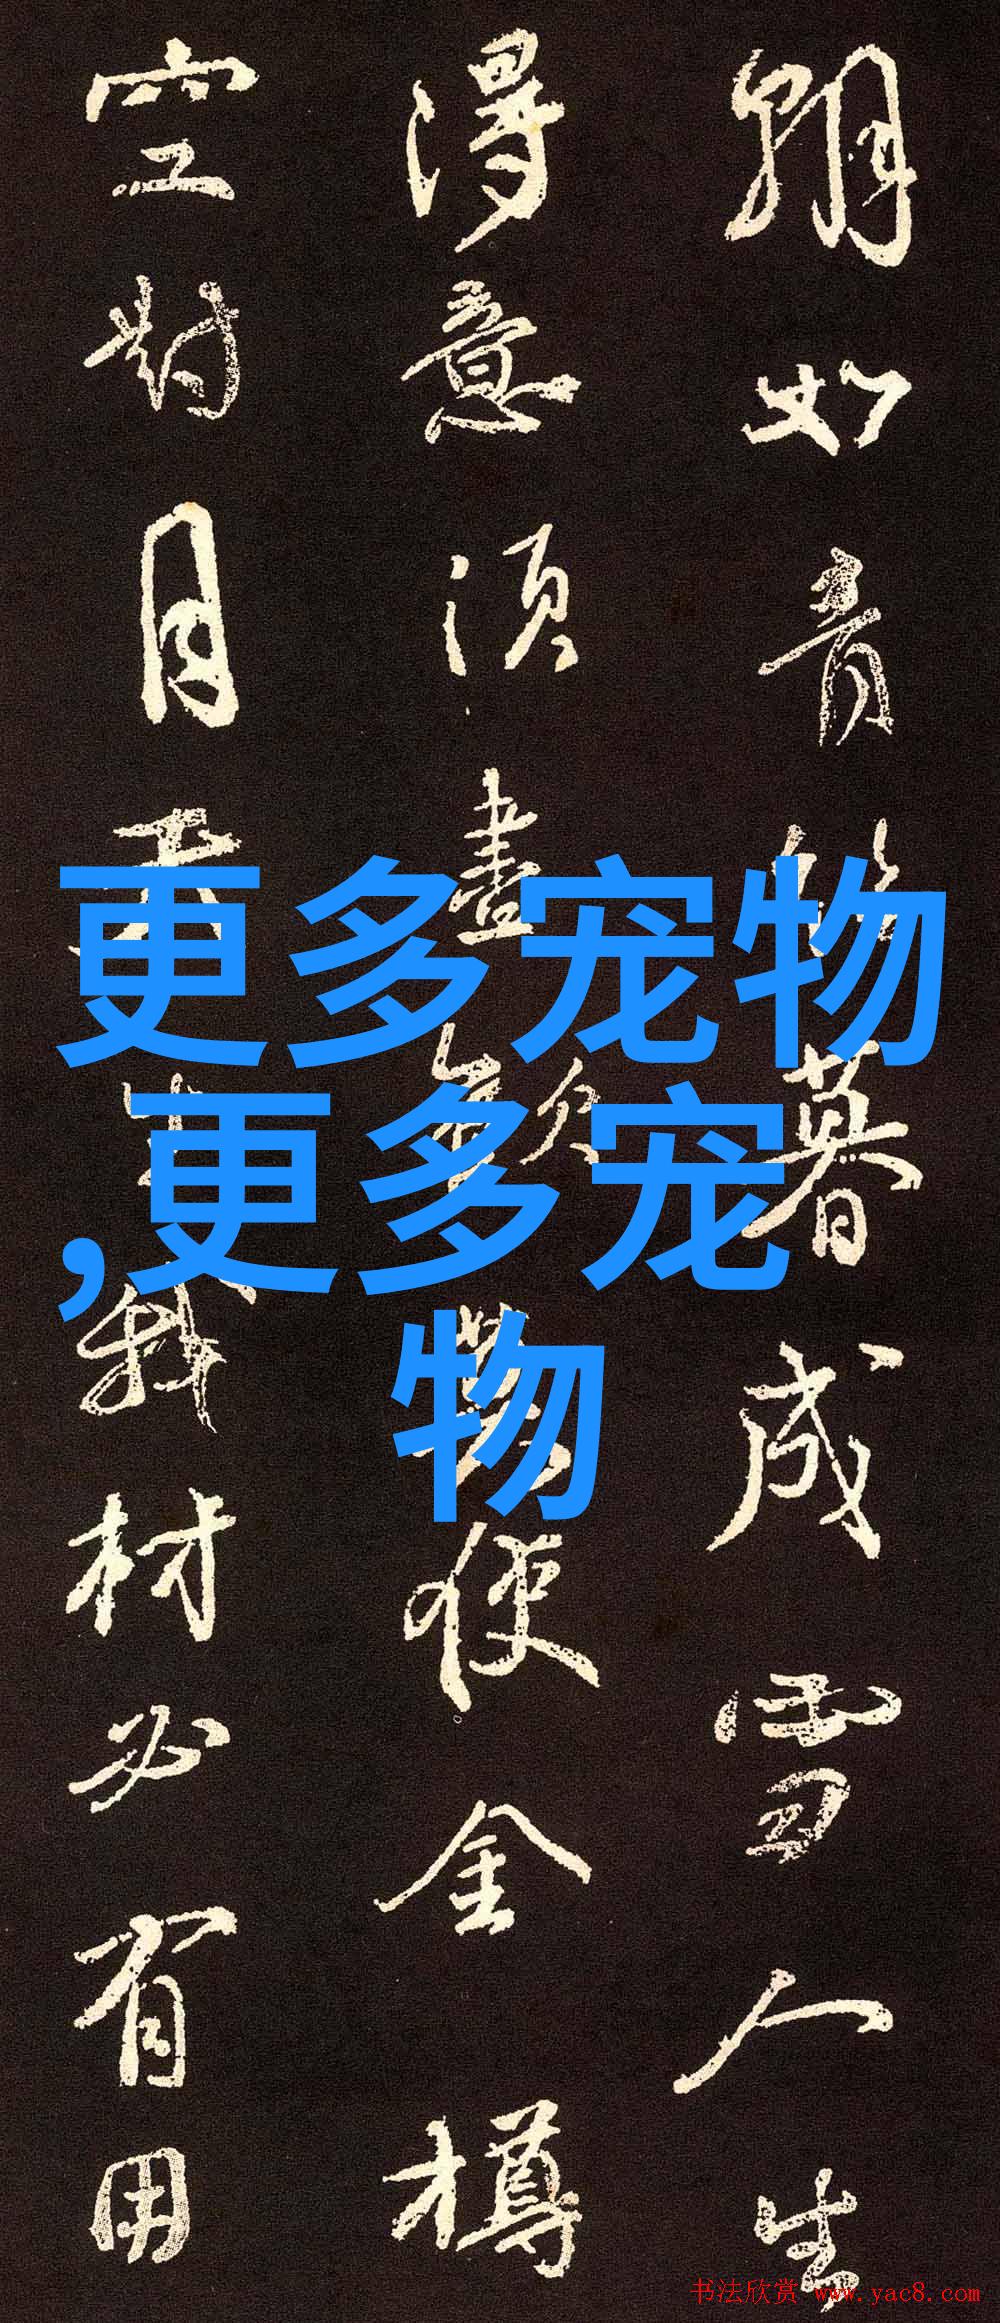 朝如青絲暮成雪人生
得意須盡歡莫使金樽
空對月天生我材必有用
更多宠物
,更多宠
物
书法欣赏 www.yac8.com